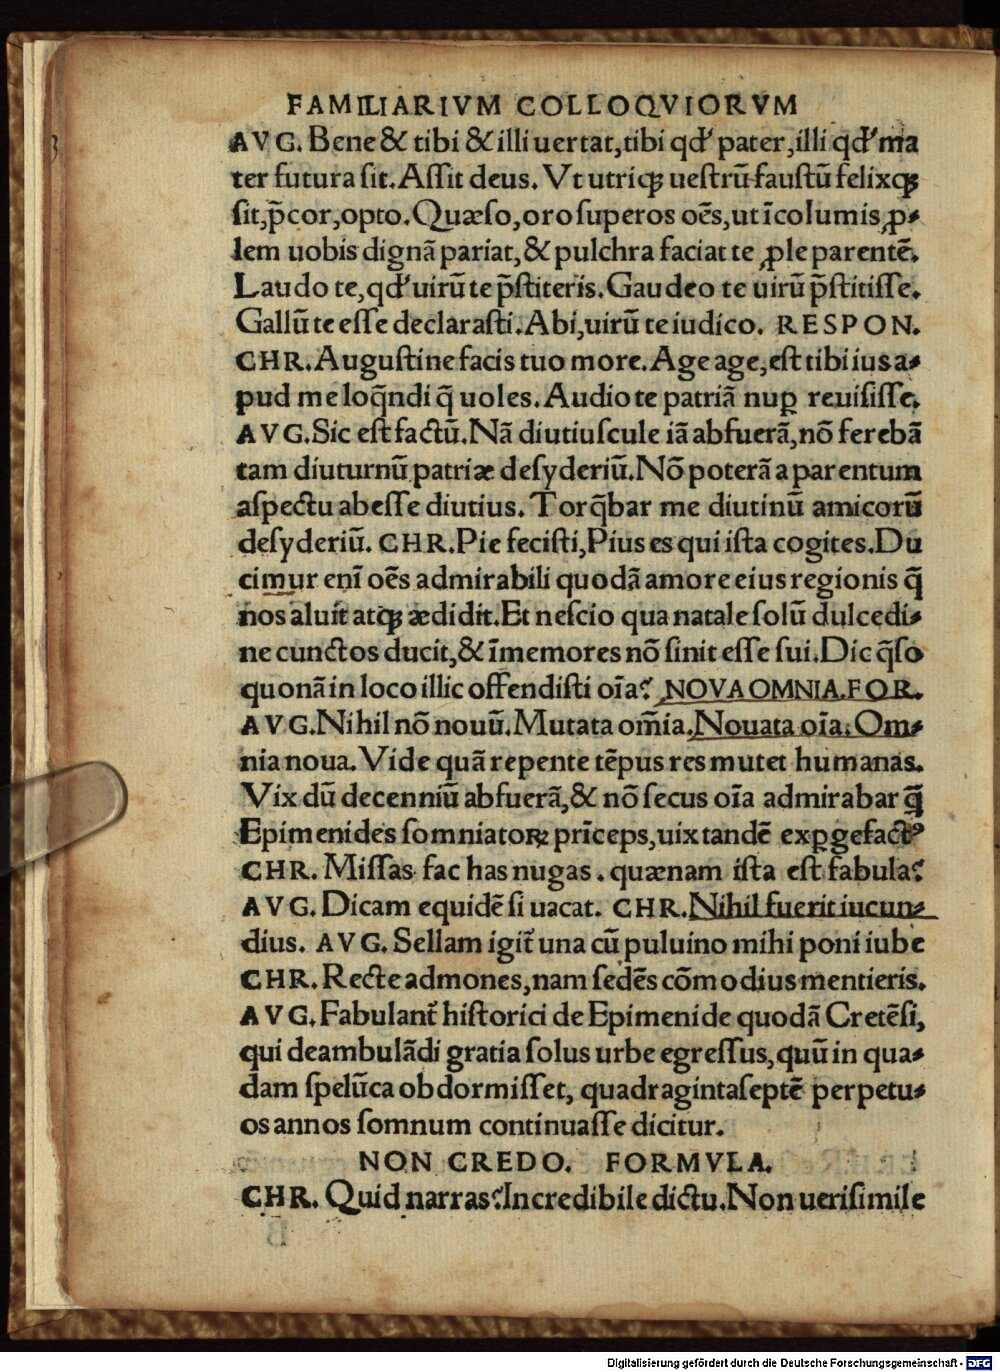 FAMILIARIVM COLLOQVIORVM
AVG. Bene & tibi & illi uertat, tibi qđ pater, illi qđ ma
ter futura sit. Assit deus. Vt utriqꝫ uestrū faustū felixqꝫ
sit, p̄cor, opto. Quæso, oro superos oēs, ut īcolumis, ꝓ⸗
lem uobis dignā pariat, & pulchra faciat te ꝓle parentē.
Laudo te, qđ uirū te p̄stiteris. Gaudeo te uirū p̄stitisse.
Gallū te esse declarasti. Abi, uirū te iudico. RESPON.
CHR. Augustine facis tuo more. Age age, est tibi ius a⸗
pud me loq̄ndi q̄ uoles. Audio te patriā nuꝑ reuisisse.
AVG. Sic est factū. Nā diutiuscule iā abfuerā, nō ferebā
tam diuturnū patriæ desyderiū. Nō poterā a parentum
aspectu abesse diutius. Torq̄bar me diutinū amicorū
desyderiū. CHR. Pie fecisti, Pius es qui ista cogites. Du
cimur enī oēs admirabili quodā amore eius regionis q̄
nos aluit atqꝫ ædidit. Et nescio qua natale solū dulcedi⸗
ne cunctos ducit, & īmemores nō sinit esse sui. Dic q̄so
quonā in loco illic offendisti oīa? NOVA OMNIA. FOR.
AVG. Nihil nō nouū. Mutata om̄ia. Nouata oīa. Om⸗
nia noua. Vide quā repente tēpus res mutet humanas.
Vix dū decenniū abfuerā, & nō secus oīa admirabar q̄
Epimenides somniatoꝝ prīceps, uix tandē exꝑgefactꝰ
CHR. Missas fac has nugas. quænam ista est fabula?
AVG. Dicam equidē si uacat. CHR. Nihil fuerit iucun⸗
dius. AVG. Sellam igit̄ una cū puluino mihi poni iube
CHR. Recte admones, nam sedēs cōmodius mentieris.
AVG. Fabulant̄ historici de Epimenide quodā Cretēsi,
qui deambulādi gratia solus urbe egressus, quū in qua⸗
dam spelūca obdormisset, quadragintaseptē perpetu⸗
os annos somnum continuasse dicitur.
NON CREDO. FORMVLA.
CHR. Quid narras? Incredibile dictu. Non uerisimile
Digitalisierung gefördert durch die Deutsche Forschungsgemeinschaft - DFG